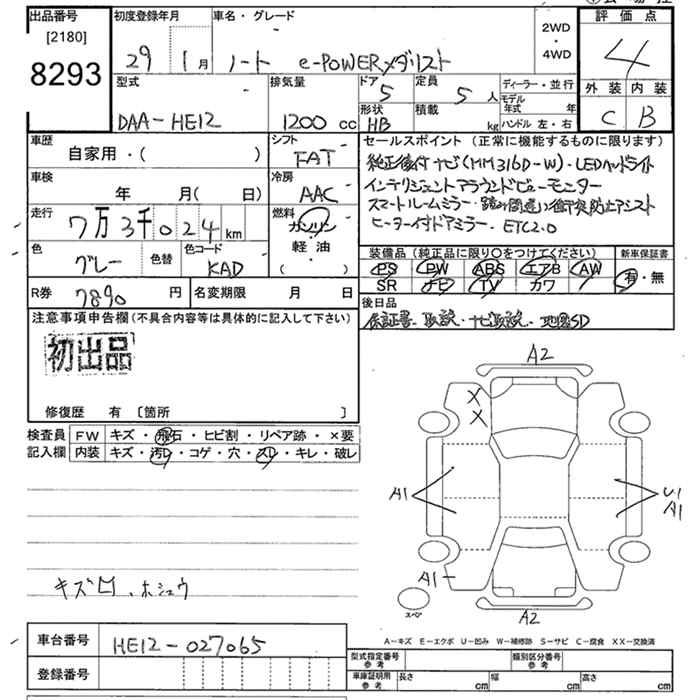 出品番号
[2180]
8293
初度登録年月
29 1月
車名・グレード
ノート e-POWERメダリスト
2WD
・
4WD
評価点
4
外装 内装
C B
型式
DAA-HE12
排気量
1200 cc
ドア
5
定員
5 人
形状
HB
積載
kg
ディーラー・並行
モデル年式 年
ハンドル 左・右
車歴
自家用・( )
シフト
FAT
車検
年 月( 日)
冷房
AAC
走行
7万3千024 km
燃料
ガソリン
・
軽油
( )
色
グレー
色替
色コード
KAD
R券
7890 円
名変期限 月 日
セールスポイント(正常に機能するものに限ります)
純正後付ナビ(MM316D-W)・LEDヘッドライト
インテリジェントアラウンドビューモニター
スマートルームミラー・踏み間違い衝突防止アシスト
ヒーター付ドアミラー・ETC2.0
装備品(純正品に限り○をつけてください)
PS PW ABS エアB AW
SR ナビ TV カワ /
新車保証書
有・無
後日品
保証書・取説・ナビ取説・地図SD
注意事項申告欄(不具合内容等は具体的に記入して下さい)
初出品
修復歴 有 [箇所 ]
検査員記入欄
FW キズ・飛石・ヒビ割・リペア跡・×要
内装 キズ・汚レ・コゲ・穴・スレ・キレ・破レ
キズ凹、ホシュウ
A2
X
X
A1
U1
A1
A1
スペア
A2
A-キズ E-エクボ U-凹み W-補修跡 S-サビ C-腐食 XX-交換済
車台番号
HE12-027065
登録番号
型式指定番号
参考
類別区分番号
参考
車庫証明用
参考
長さ cm
幅 cm
高さ cm